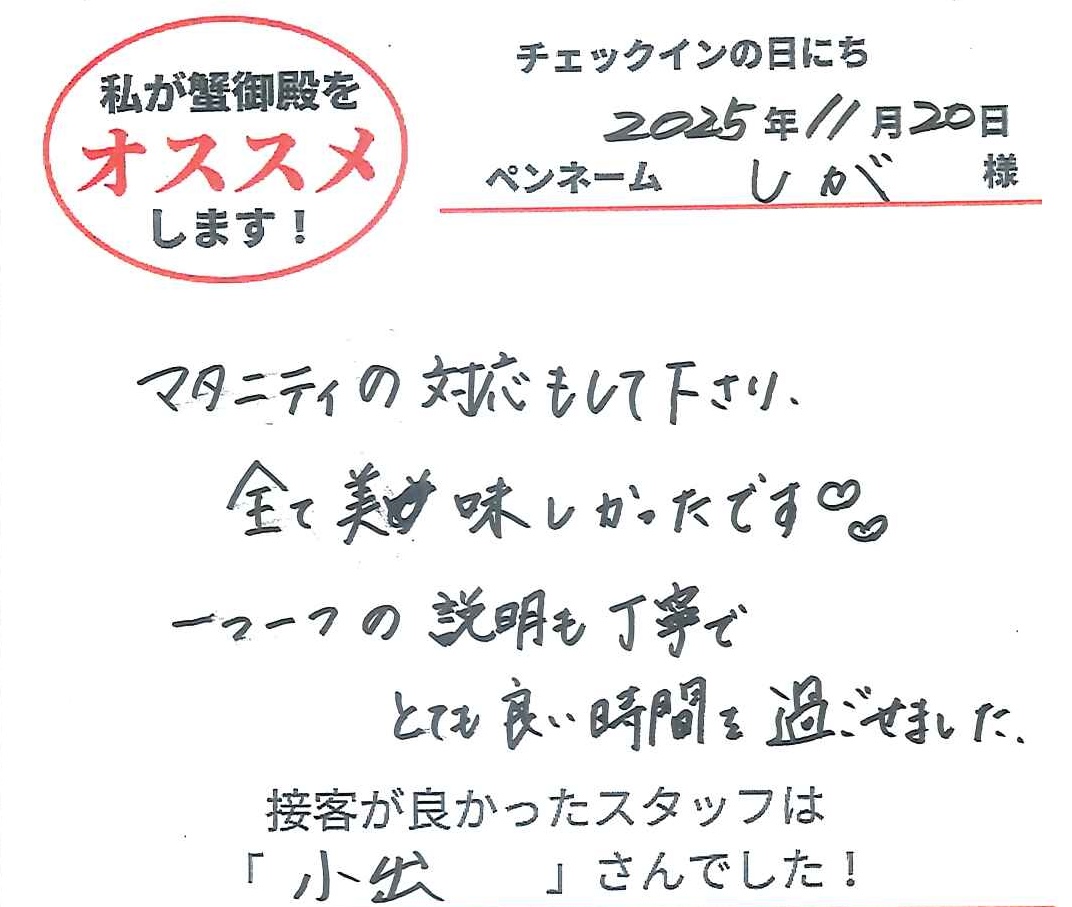 私が蟹御殿を
オススメ
します！
チェックインの日にち
2025年11月20日
ペンネーム しが 様
マタニティの対応もして下さり、
全て美味しかったです♡♡
一つ一つの説明も丁寧で
とても良い時間を過ごせました、
接客が良かったスタッフは
「小出」さんでした！